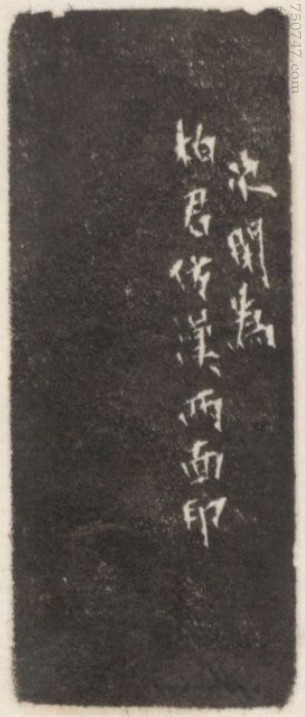 次閑為
柏君仿漢兩面印
750747.com